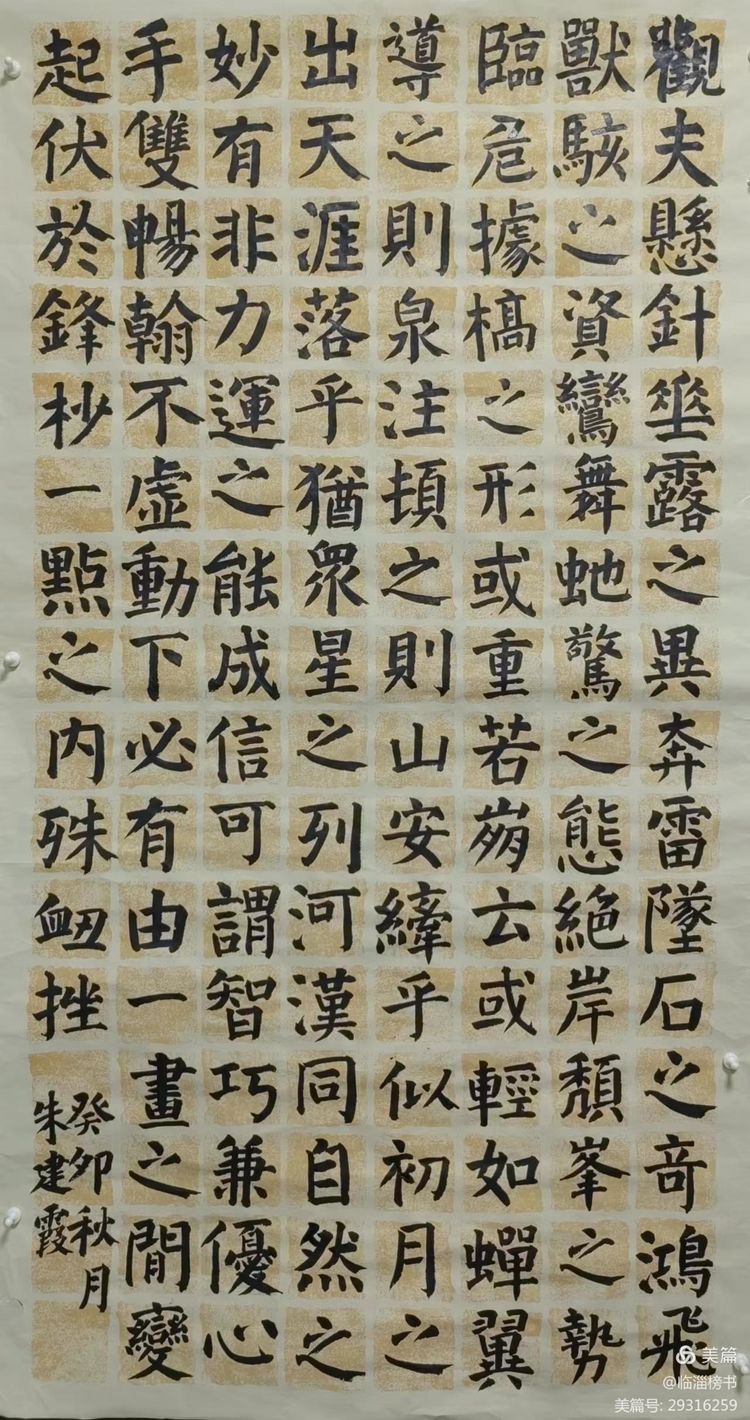 觀夫懸針垂露之異奔雷墜石之奇鴻飛
獸駭之資鸞舞虵驚之態絕岸頹峯之勢
臨危據槁之形或重若崩云或輕如蟬翼
導之則泉注頓之則山安縴乎似初月之
出天涯落乎猶眾星之列河漢同自然之
妙有非力運之能成信可謂智巧兼優心
手雙暢翰不虛動下必有由一畫之閒變
起伏於鋒杪一點之內殊衄挫
癸卯秋月
朱建霞
美篇
@临淄榜书
美篇号: 29316259